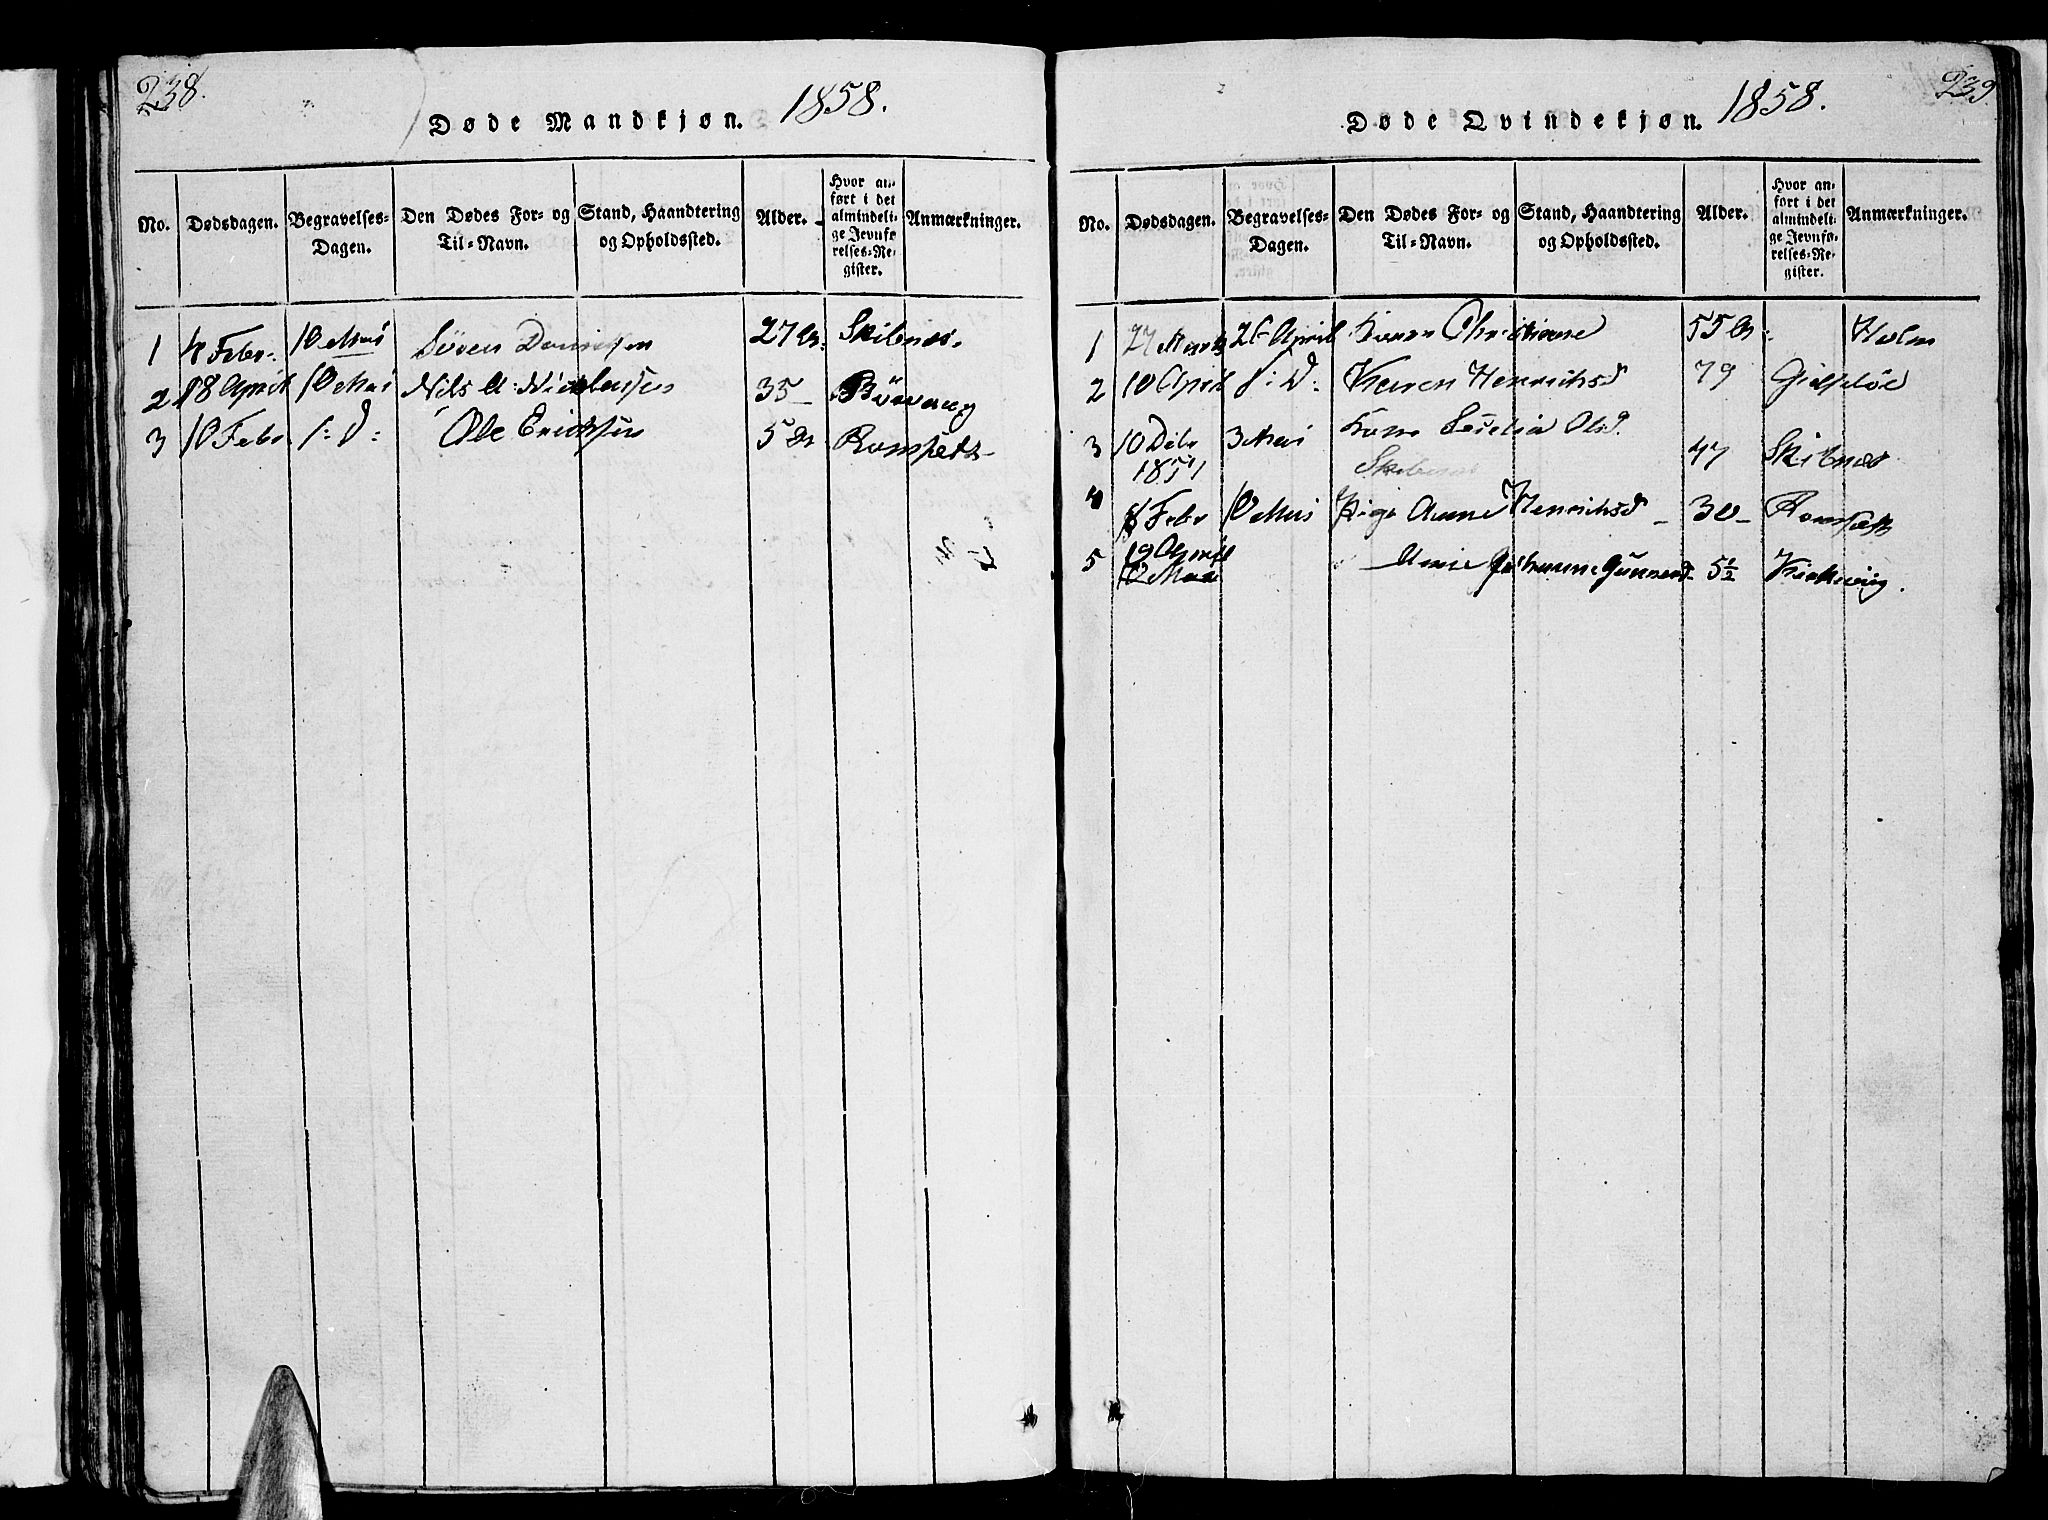 238.
Døde Mandkjøn. 1858.
No. Dødsdagen. Begravelses-Dagen. Den Dødes For- og Til-Navn. Stand, Haandtering og Opholdssted. Alder. Hvor anført i det almindelige Jevnførelses-Register. Anmærkninger.
1 4 Febr. 10 Mai Sören Danielsen 27 Skibnæs.
2 18 April 10 Mai Nils A: Nicolaisen 35
3 10 Febr /: D: Ole Ericksen 5 Romsæth
239
Døde Qvindekjøn. 1858.
No. Dødsdagen. Begravelses-Dagen. Den Dødes For- og Til-Navn. Stand, Haandtering og Opholdssted. Alder. Hvor anført i det almindelige Jevnførelses-Register. Anmærkninger.
1 27 Marts 26 April Christiane 55 Holm
2 10 April /: D: Karen Henrichsd 79
3 10 Dcbr 3 Mai Kone Cecelia Olsd.
1857 Skibnæs 47 Skibnæs
4 8 Febr 10 Mai Pige Anne Henrichsd 30 Romsæth
5 19 April
10 Mai Anne Johanne Gunnersd 5½